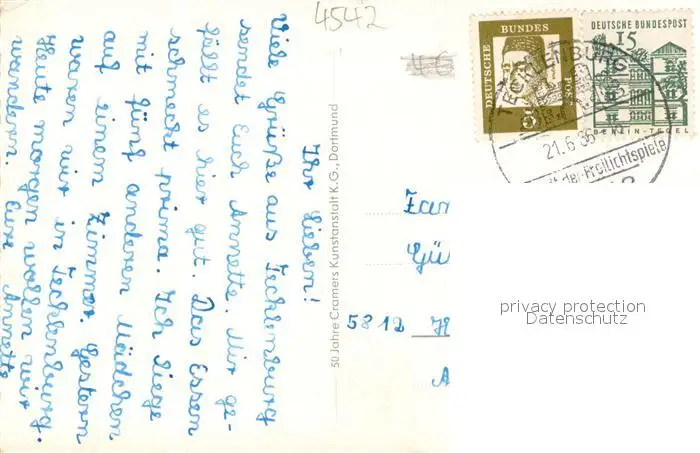 4542
Ihr Lieben!
Viele Grüße aus Tecklenburg
sendet Euch Annette. Mir ge-
fällt es hier gut. Das Essen
schmeckt prima. Ich liege
mit fünf anderen Mädchen
auf einem Zimmer. Gestern
waren wir in Tecklenburg.
Heute morgen wollen wir
wandern. Eure Annette
50 Jahre Cramers Kunstanstalt K.G., Dortmund
DEUTSCHE BUNDES POST
5
DEUTSCHE BUNDESPOST
15
BERLIN-TEGEL
TECKLENBURG
21.6.66
der Freilichtspiele
Gü
5812 H
A
privacy protection
Datenschutz